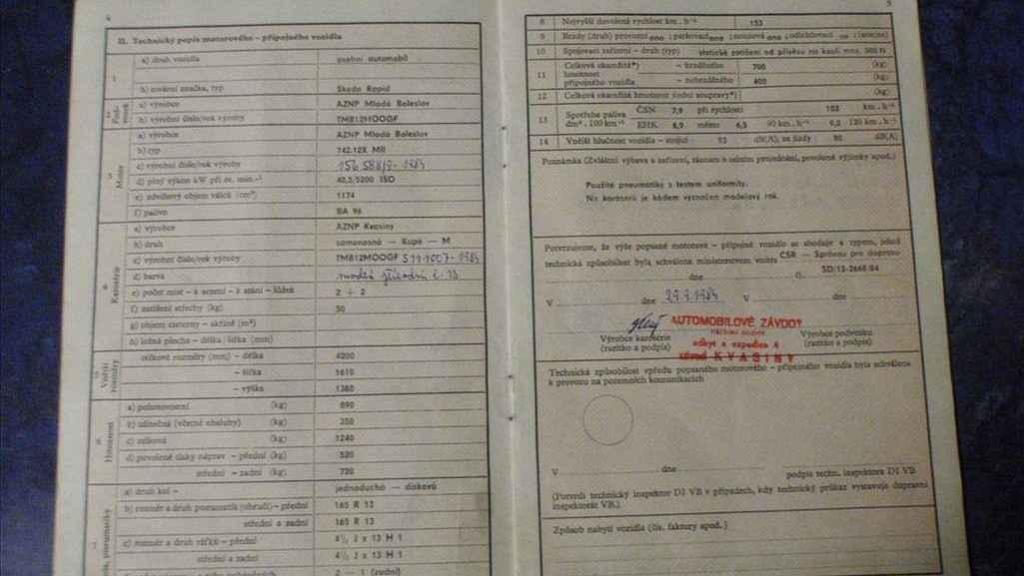 4
II. Technický popis motorového – přípojného vozidla
a) druh vozidla osobní automobil
b) tovární značka, typ Škoda Rapid
a) výrobce AZNP Mladá Boleslav
b) výrobní číslo/rok výroby TMB12MOOGF
Motor
a) výrobce AZNP Mladá Boleslav
b) typ 742.12X MII
c) výrobní číslo/rok výroby
d) plný výkon kW při ot. min.-¹ 42,5/5200 ISO
e) zdvihový objem válců (cm³) 1174
f) palivo BA 96
Karosérie
a) výrobce AZNP Kvasiny
b) druh samonosná – Kupé – M
c) výrobní číslo/rok výroby TMB12MOOGF
d) barva modrá
e) počet míst – k sezení – k stání – lůžek 2 + 2
f) zatížení střechy (kg) 50
g) objem cisterny – skříně (m³)
h) ložná plocha – délka šířka (mm)
Vnější rozměry
celkové rozměry (mm) – délka 4200
– šířka 1610
– výška 1380
Hmotnosti
a) pohotovostní (kg) 890
b) užitečná (včetně obsluhy) (kg) 350
c) celková (kg) 1240
d) povolené tlaky náprav – přední (kg) 520
střední – zadní (kg) 720
a) druh kol – jednoduchá – disková
b) rozměr a druh pneumatik (obručí) – přední 165 R 13
střední a zadní 165 R 13
c) rozměr a druh ráfků – přední 4½ J x 13 H 1
střední a zadní 4½ J x 13 H 1
2 – 1 (zadní)
5
8 Nejvyšší dovolená rychlost km . h-¹ 153
9 Brzdy (druh) provozní ano parkovací ano nouzová ano odlehčovací
10 Spojovací zařízení – druh (typ)
11 Celková okamžitá*) hmotnost přípojného vozidla – brzděného 700 (kg)
– nebrzděného 400 (kg)
12 Celková okamžitá hmotnost jízdní soupravy*) (kg)
13 Spotřeba paliva dm³ . 100 km-¹ ČSN 7,9 při rychlosti km . h-¹
EHK
14 Vnější hlučnost vozidla – stojící dB(A), za jízdy 80 dB(A)
Poznámka (Zvláštní výbava a zařízení, záznam o celním projednání, povolené výjimky apod.)
Použité pneumatiky s testem uniformity.
Na karosérii je kódem vyznačen modelový rok.
Potvrzujeme, že výše popsané motorové – přípojné vozidlo se shoduje s typem, jehož
technická způsobilost byla schválena ministerstvem vnitra ČSR – Správou pro dopravu
dne
V dne V dne
AUTOMOBILOVÉ ZÁVODY
odbyt a expedice 4
závod KVASINY
Výrobce karosérie Výrobce podvozku
(razítko a podpis) (razítko a podpis)
Technická způsobilost vpředu popsaného motorového – přípojného vozidla byla schválena
k provozu na pozemních komunikacích
V dne
podpis techn. inspektora DI VB
(Potvrdí technický inspektor DI VB v případech, kdy technický průkaz vystavuje dopravní
inspektorát VB.)
Způsob nabytí vozidla (čís. faktury apod.)